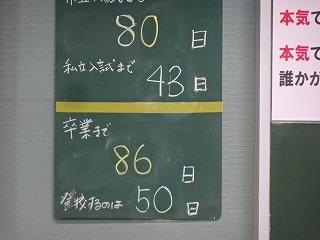 80日
私立入試まで
43日
卒業まで
86日
登校するのは
50日
本気で
本気で
誰かが